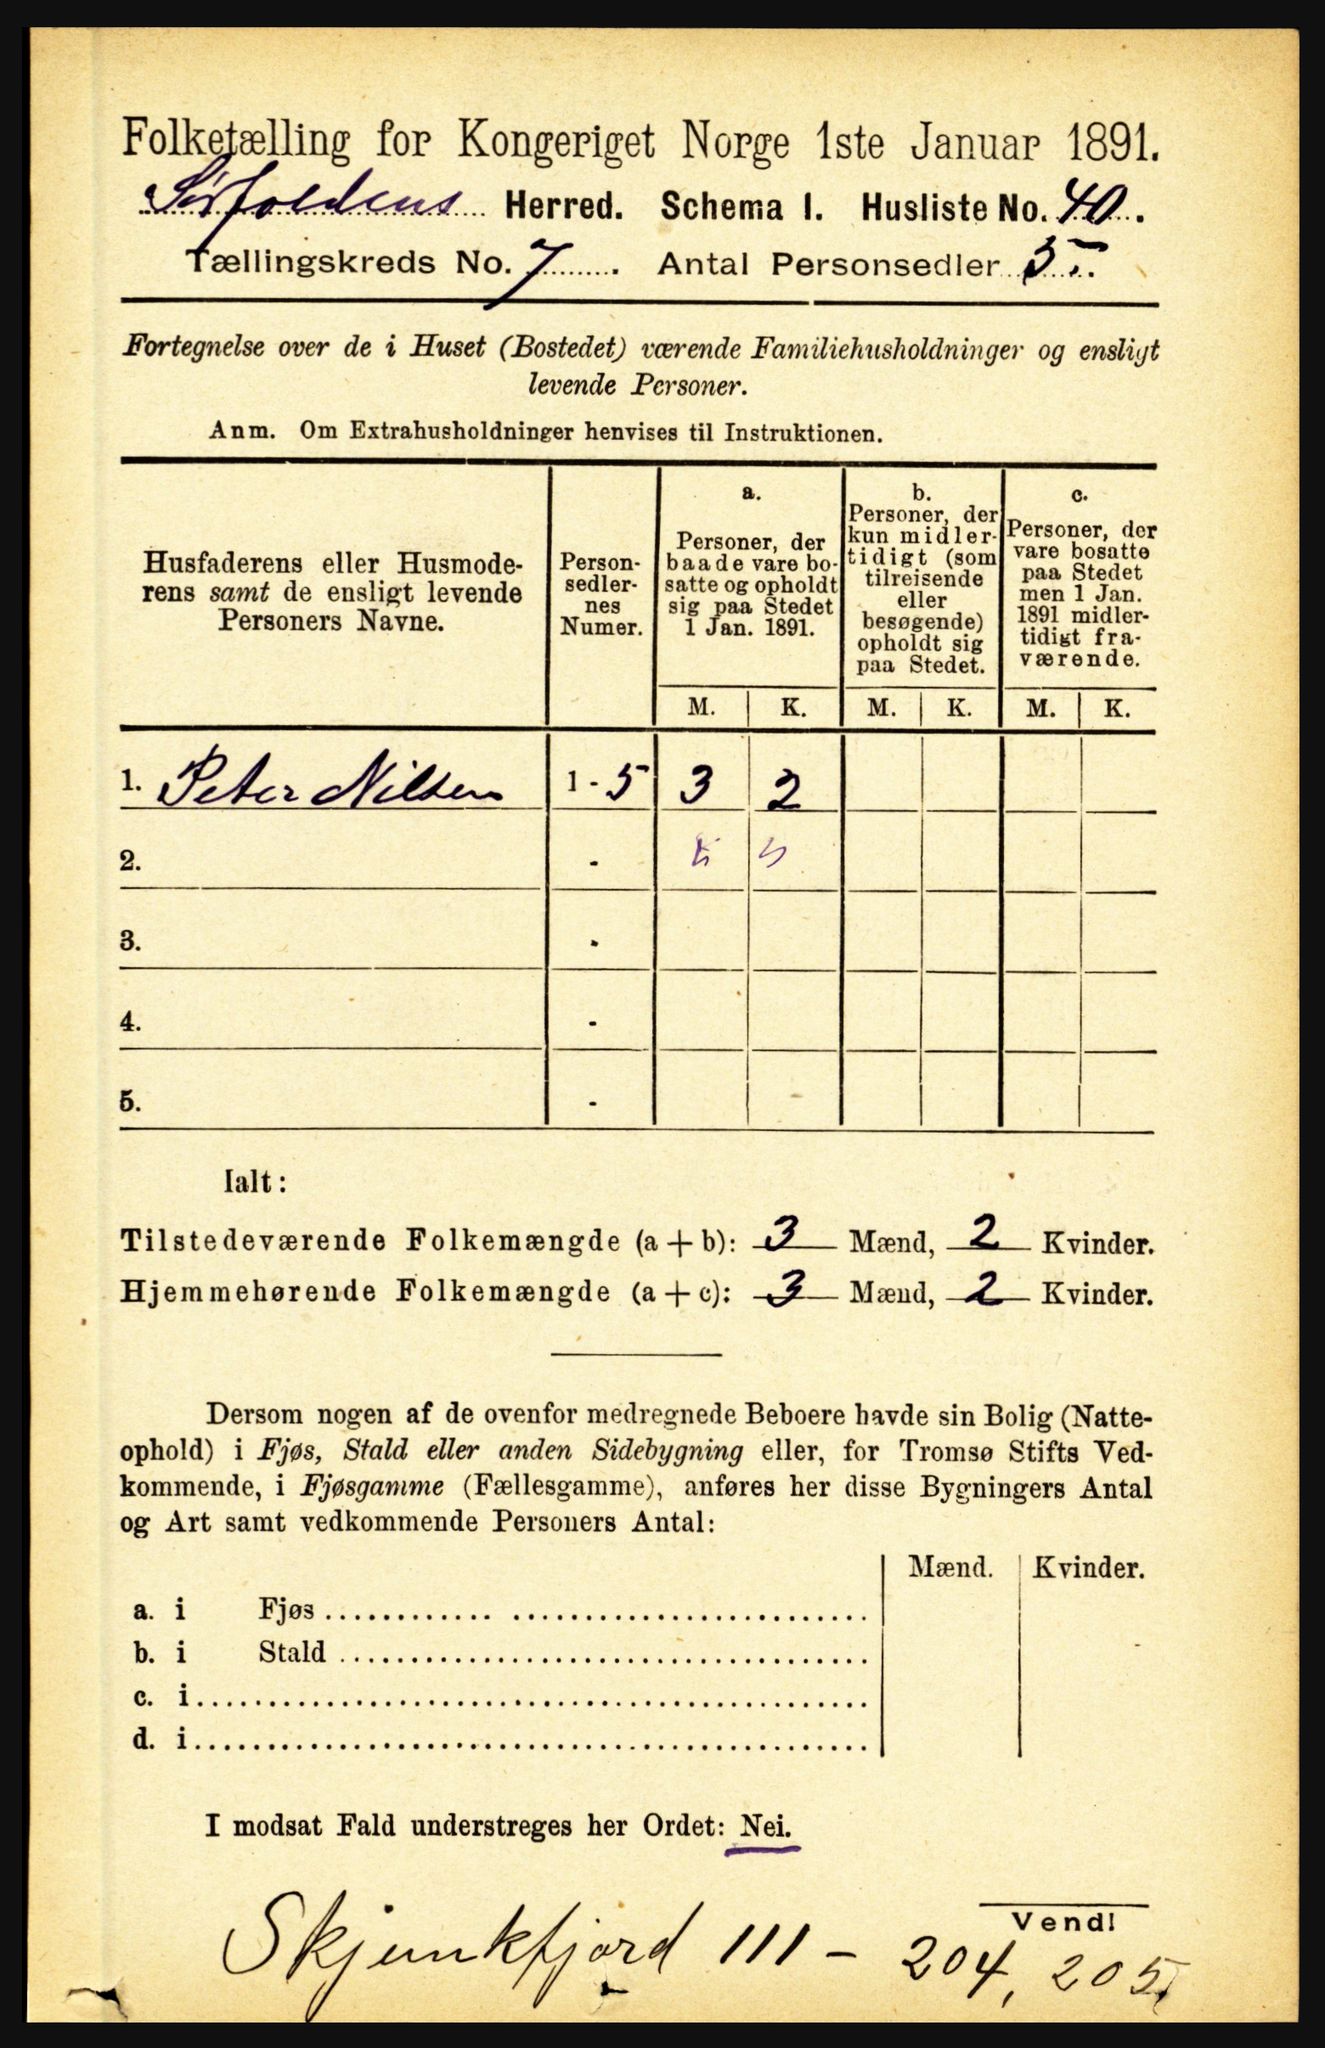 Folketælling for Kongeriget Norge 1ste Januar 1891.
Sørfoldens Herred. Schema I. Husliste No. 40.
Tællingskreds No. 7. Antal Personsedler 5.
Fortegnelse over de i Huset (Bostedet) værende Familiehusholdninger og ensligt
levende Personer.
Anm. Om Extrahusholdninger henvises til Instruktionen.
Husfaderens eller Husmode-
rens samt de ensligt levende
Personers Navne.
Person-
sedler-
nes
Numer.
a.
Personer, der
baade vare bo-
satte og opholdt
sig paa Stedet
1 Jan. 1891.
b.
Personer, der
kun midler-
tidigt (som
tilreisende
eller
besøgende)
opholdt sig
paa Stedet.
c.
Personer, der
vare bosatte
paa Stedet
men 1 Jan.
1891 midler-
tidigt fra-
værende.
M. K. M. K. M. K.
1. Peter Nilsen 1 - 5 3 2
2. -
3. -
4. -
5. -
Ialt:
Tilstedeværende Folkemængde (a + b): 3 Mænd, 2 Kvinder.
Hjemmehørende Folkemængde (a + c): 3 Mænd, 2 Kvinder.
Dersom nogen af de ovenfor medregnede Beboere havde sin Bolig (Natte-
ophold) i Fjøs, Stald eller anden Sidebygning eller, for Tromsø Stifts Ved-
kommende, i Fjøsgamme (Fællesgamme), anføres her disse Bygningers Antal
og Art samt vedkommende Personers Antal:
Mænd. Kvinder.
a. i Fjøs
b. i Stald
c. i
d. i
I modsat Fald understreges her Ordet: Nei.
Vend!
Skjunkfjord 111 - 204, 205.